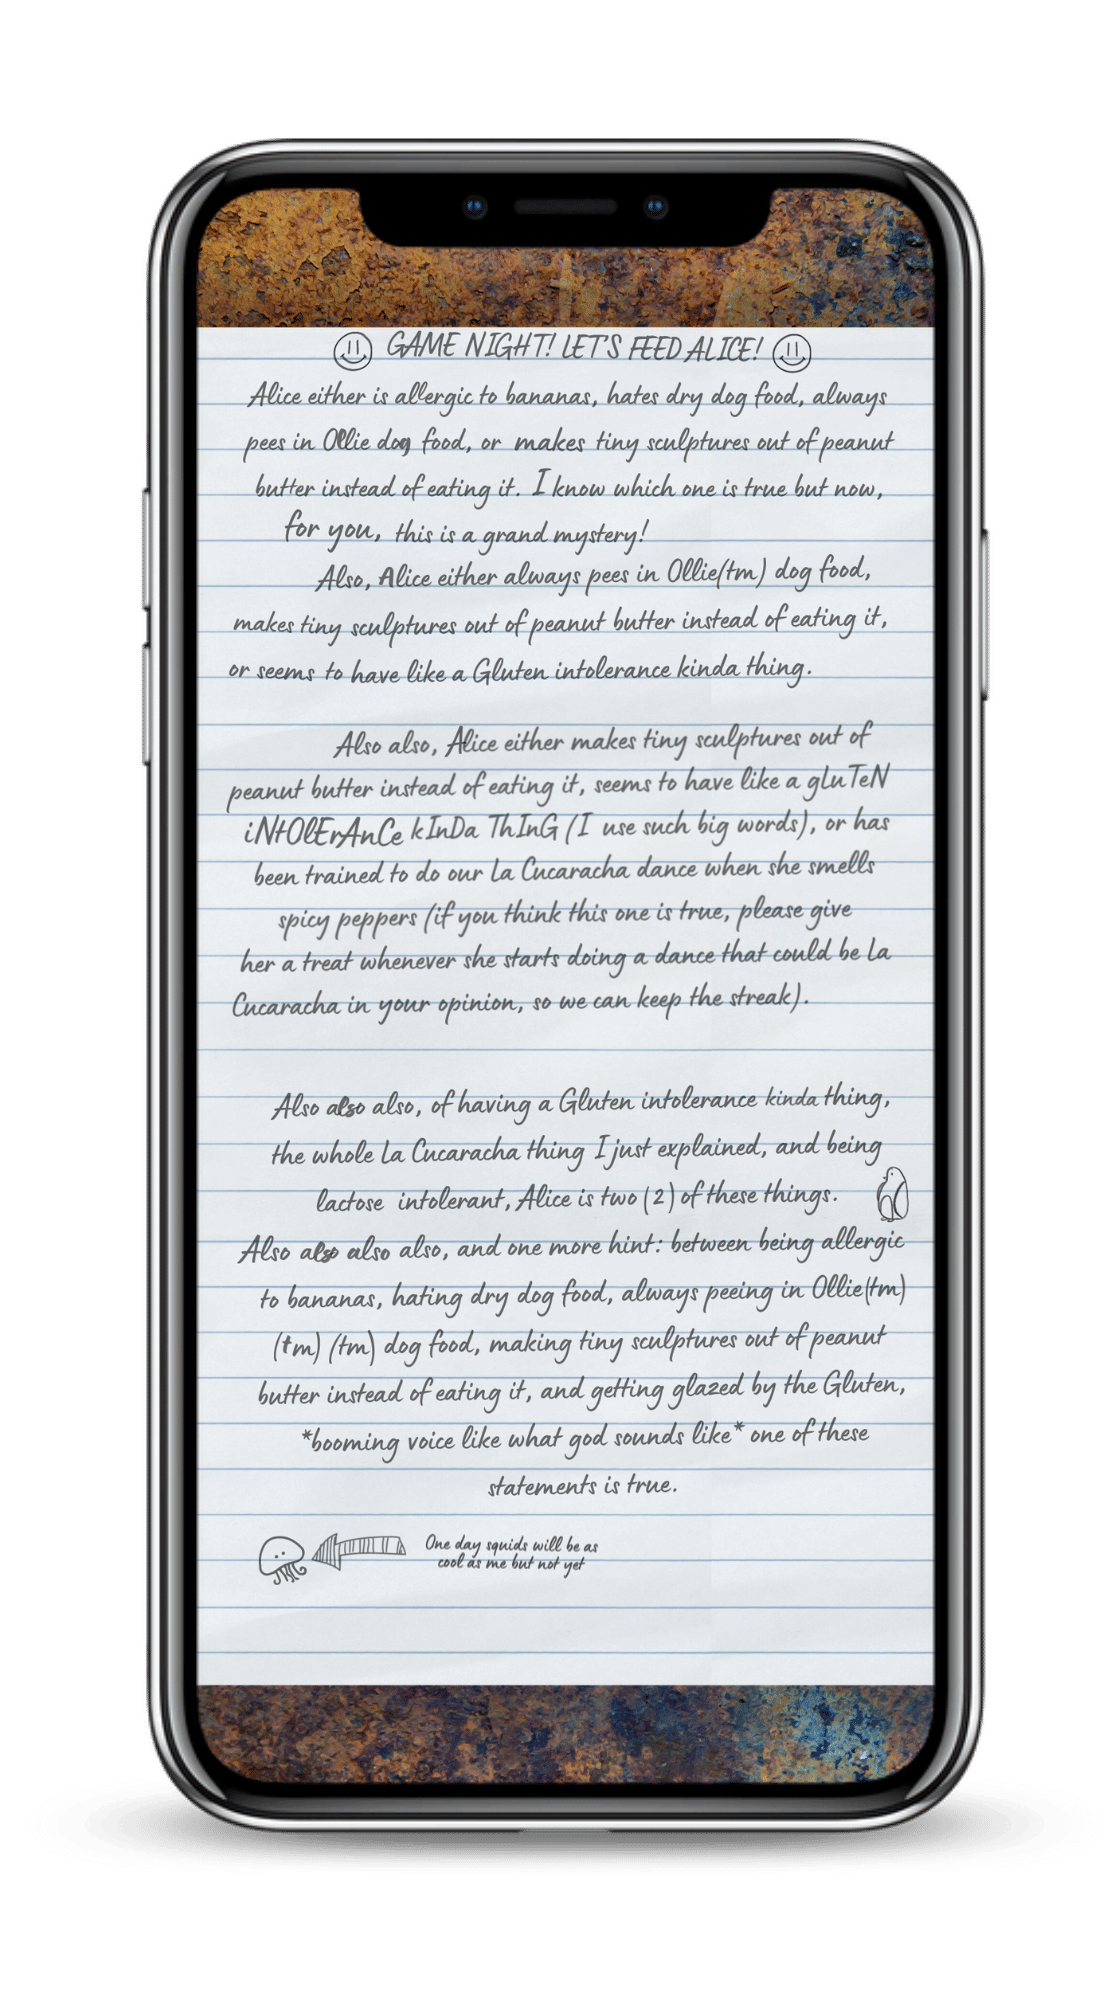 GAME NIGHT! LET'S FEED ALICE!
Alice either is allergic to bananas, hates dry dog food, always
pees in Ollie dog food, or makes tiny sculptures out of peanut
butter instead of eating it. I know which one is true but now,
for you, this is a grand mystery!
Also, Alice either always pees in Ollie(tm) dog food,
makes tiny sculptures out of peanut butter instead of eating it,
or seems to have like a Gluten intolerance kinda thing.
Also also, Alice either makes tiny sculptures out of
peanut butter instead of eating it, seems to have like a gluTeN
iNtOlErAnCe kInDa ThInG (I use such big words), or has
been trained to do our La Cucaracha dance when she smells
spicy peppers (if you think this one is true, please give
her a treat whenever she starts doing a dance that could be La
Cucaracha in your opinion, so we can keep the streak).
Also also also, of having a Gluten intolerance kinda thing,
the whole La Cucaracha thing I just explained, and being
lactose intolerant, Alice is two (2) of these things.
Also also also also, and one more hint: between being allergic
to bananas, hating dry dog food, always peeing in Ollie(tm)
(tm) (tm) dog food, making tiny sculptures out of peanut
butter instead of eating it, and getting glazed by the Gluten,
*booming voice like what god sounds like* one of these
statements is true.
One day squids will be as
cool as me but not yet